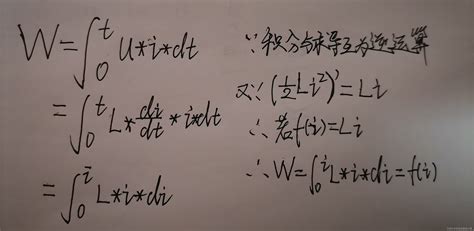 W=∫₀ᵗ u*i*dt
=∫₀ᵗ L*di/dt*i*dt
=∫₀ⁱ L*i*di
∵积分与求导互为逆运算
又∵(½Li²)'=Li
∴若f(i)=Li
∴W=∫₀ⁱL*i*di=f(i)